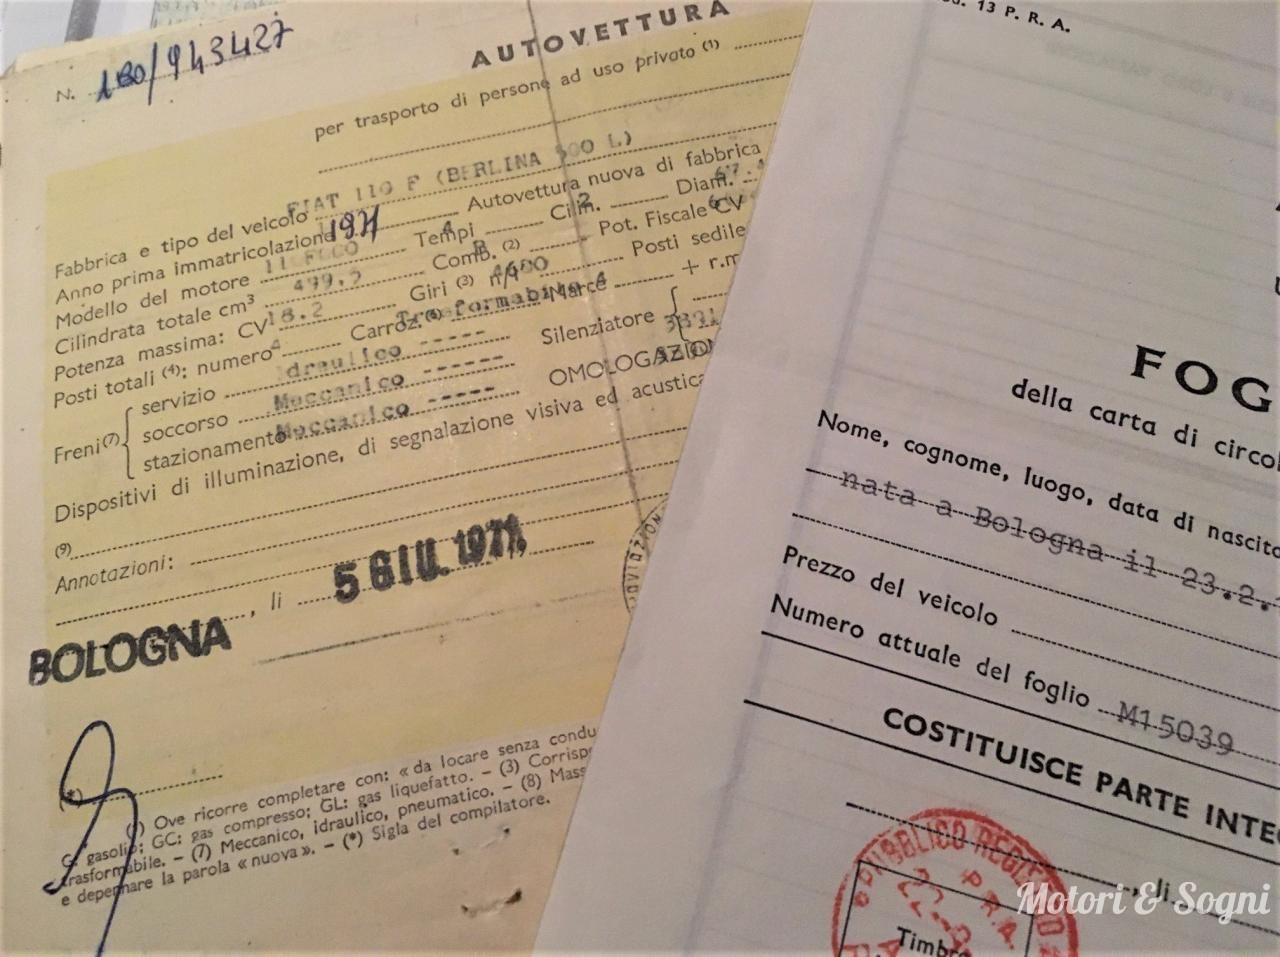 N. 180/943427
AUTOVETTURA
per trasporto di persone ad uso privato (1)
FIAT 110 F (BERLINA 500 L)
Fabbrica e tipo del veicolo
Anno prima immatricolazione 1971 Autovettura nuova di fabbrica
Modello del motore 110F000 Tempi 4 Cilin. 2 Diam. 67.4
Cilindrata totale cm3 499.5 Comb. (2) B Pot. Fiscale CV
Potenza massima: CV 18.2 Giri (3) n/1' 4600 Posti sedile
Posti totali (4): numero 4 Carroz. (6) Trasformabile Marce 4 + r.m
Freni (7) servizio idraulico ----- Silenziatore
soccorso Meccanico ------
stazionamento Meccanico ----- OMOLOGAZION
Dispositivi di illuminazione, di segnalazione visiva ed acustica
(9)
Annotazioni:
BOLOGNA, li 5 GIU. 1971
(*)
(1) Ove ricorre completare con: « da locare senza condu
G: gasolio; GC: gas compresso; GL: gas liquefatto. – (3) Corrisp
trasformabile. – (7) Meccanico, idraulico, pneumatico. – (8) Mass
e depennare la parola « nuova ». – (*) Sigla del compilatore.
13 P. R. A.
FOG
della carta di circol
Nome, cognome, luogo, data di nascita
nata a Bologna il 23.2.
Prezzo del veicolo
Numero attuale del foglio M15039
COSTITUISCE PARTE INTEG
, li
PUBBLICO REGISTRO
P.R.A.
Timbro
Motori & Sogni